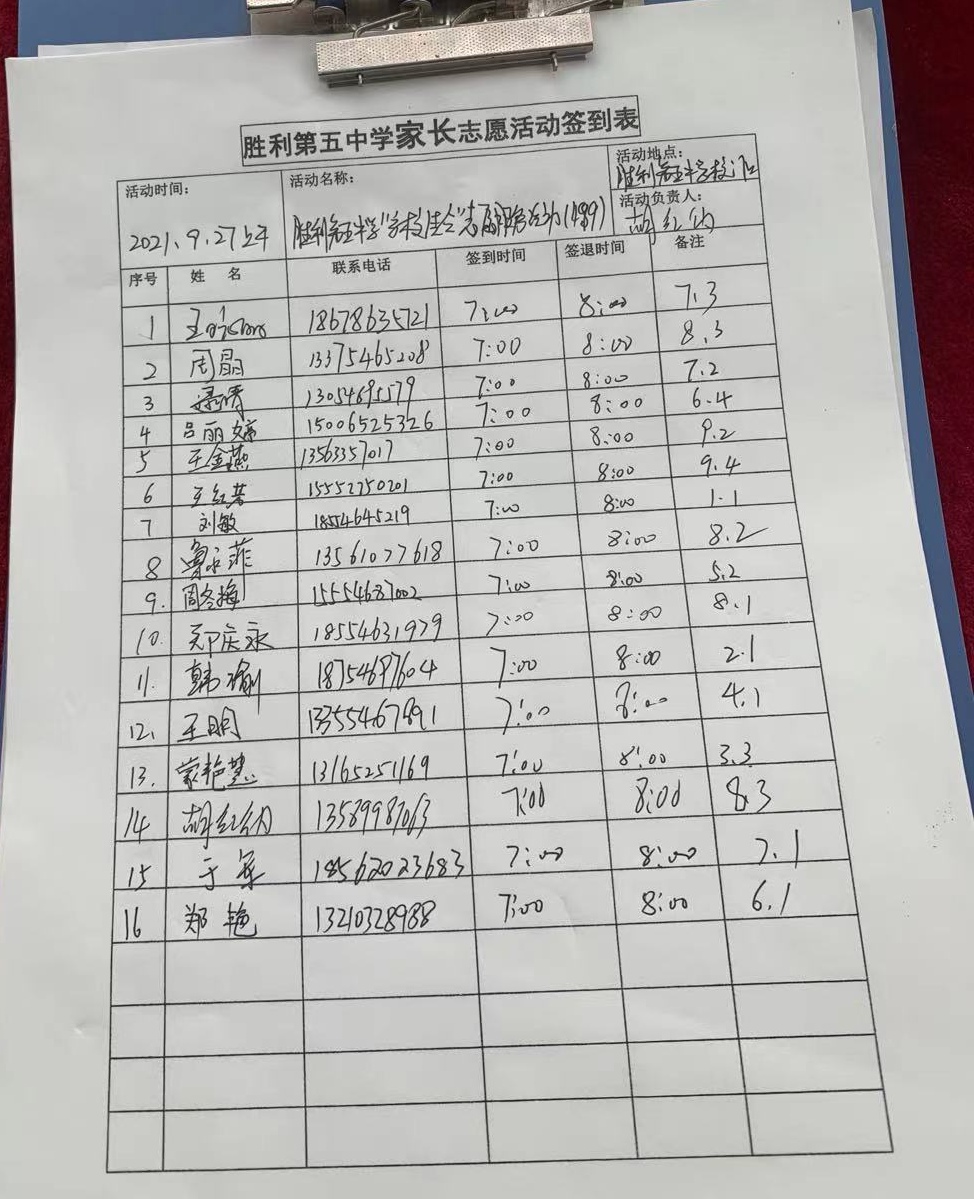 胜利第五中学家长志愿活动签到表
活动时间: 活动名称: 活动地点:
胜利第五中学学校门口
2021.9.27上午 胜利第五中学"学校安全"志愿服务活动 活动负责人:
胡红纳
序号 姓名 联系电话 签到时间 签退时间 备注
1 18678635721 7:00 8:00 7.3
2 周晶 13375465208 7:00 8:00 8.3
3 13054695579 7:00 8:00 7.2
4 吕丽婷 15006525326 7:00 8:00 6.4
5 王金燕 13563357017 7:00 8:00 9.2
6 王红 15552750201 7:00 8:00 9.4
7 刘敏 18554645219 7:00 8:00 1.1
8 鲁永菲 13561077618 7:00 8:00 8.2
9. 周冬梅 15554687002 7:00 8:00 5.2
10. 郑庆永 18554631979 7:00 8:00 8.1
11. 韩瑜 18754697604 7:00 8:00 2.1
12. 王明 13355467891 7:00 8:00 4.1
13. 蒙艳慧 13165251169 7:00 8:00 3.3
14 胡红纳 13589987063 7:00 8:00 8.3
15 于军 18562023683 7:00 8:00 7.1
16 郑艳 13210328988 7:00 8:00 6.1